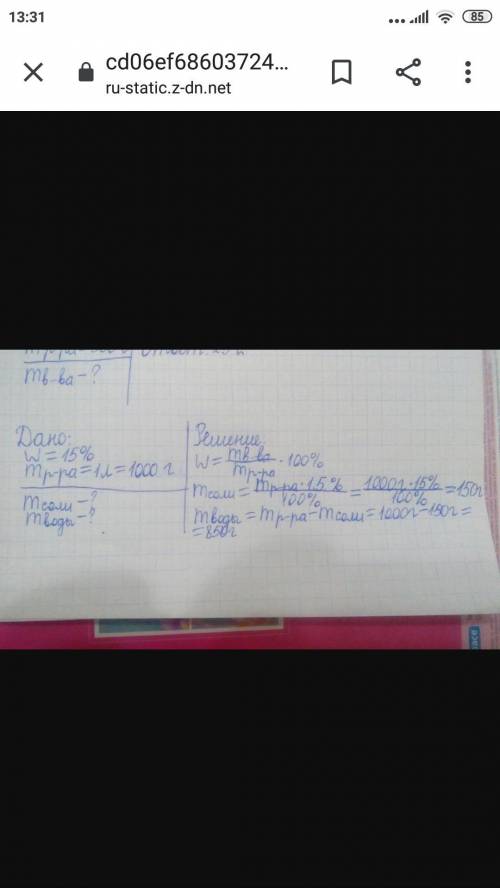 13:31
85
cd06ef68603724...
ru-static.z-dn.net
mв-ва-?
Дано:
W=15%
mр-ра=1л=1000 г
mсоли-?
mводы-?
Решение:
W=mв-ва/mр-ра·100%
mсоли=mр-ра·15%/100%=1000г·15%/100%=150г
mводы=mр-ра-mсоли=1000г-150г=
=850г